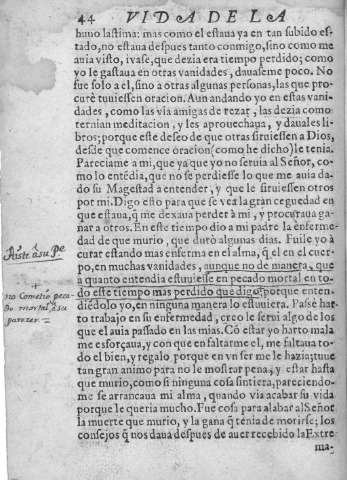 44 VIDA DE LA
huuo lastima: mas como el estaua ya en tan subido es-
tado, no estaua despues tanto conmigo, sino como me
auia visto, iuase, que dezia era tiempo perdido; como
yo le gastaua en otras vanidades, dauaseme poco. No
fue solo a el, sino a otras algunas personas, las que pro-
curè tuuiessen oracion. Aun andando yo en estas vani-
dades, como las via amigas de rezar, las dezia como
ternian meditacion, y les aprouechaua, y dauales li-
bros; porque este deseo de que otras siruiessen a Dios,
desde que comence oracion (como he dicho) le tenia.
Pareciame a mi, que ya que yo no seruia al Señor, co-
mo lo entẽdia, que no se perdiesse lo que me auia da-
do su Magestad a entender, y que le siruiessen otros
por mi. Digo esto para que se vea la gran ceguedad en
que estaua, q̃ me dexaua perder à mi, y procuraua ga-
nar a otros. En este tiempo dio a mi padre la enferme-
dad de que murio, que durò algunos dias. Fuile yo à
curar estando mas enferma en el alma, q̃ el en el cuer-
po, en muchas vanidades, aunque no de manera, que
a quanto entendia estuuiesse en pecado mortal en to-
do este tiempo mas perdido que digo; porque enten-
diẽdolo yo, en ninguna manera lo estuuiera. Passè har
to trabajo en su enfermedad, creo le serui algo de los
que el auia passado en las mias. Cõ estar yo harto mala
me esforçaua, y con que en faltarme el, me faltaua to-
do el bien, y regalo porque en vn ser me le hazia; tuue
tan grande animo para no le mostrar pena, y estar hasta
que murio, como si ninguna cosa sintiera, pareciendo-
me se arrancaua mi alma, quando via acabar su vida
porque le queria mucho. Fue cosa para alabar al Señor
la muerte que murio, y la gana q̃ tenia de morirse; los
consejos q̃ nos daua despues de auer recebido la Extre
ma-
Assistẽ â su Pe
no Cometio peca
do mortal, â su
parezer